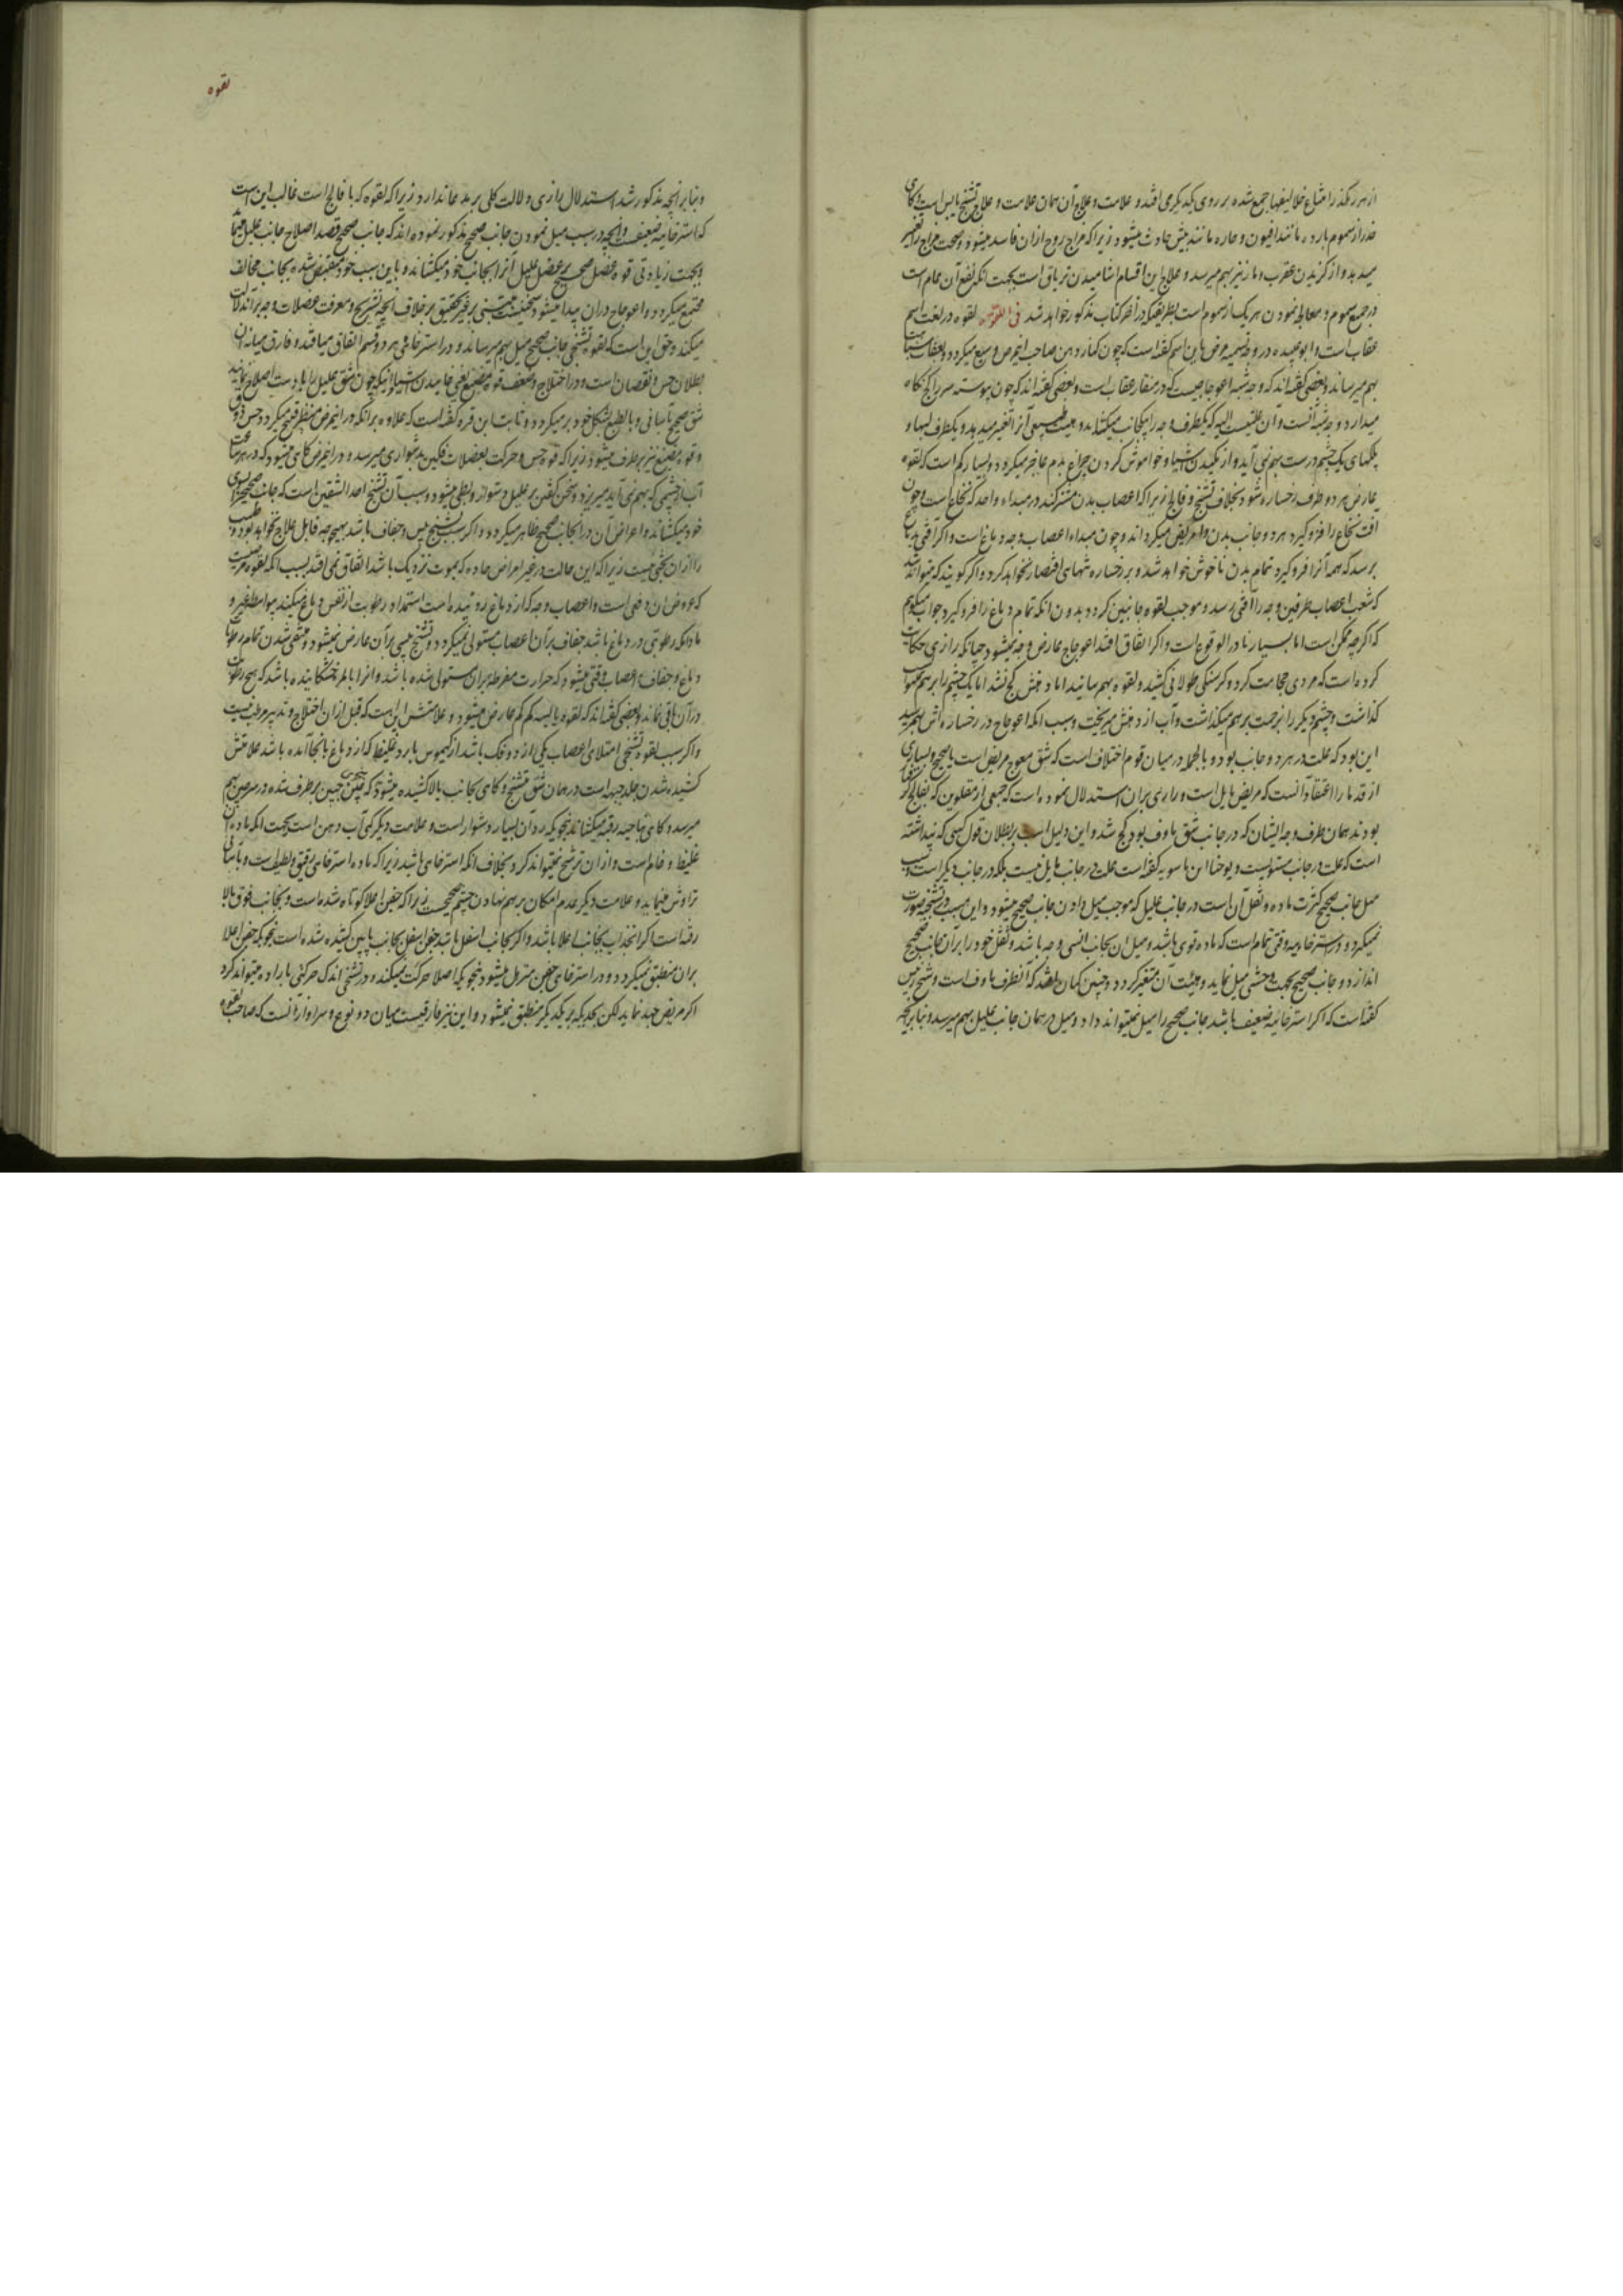 از هر رکذر امتلاع خلا لیفها جمع شده بر روی یکدیکر می افتد و علامت و علاج آن همان علامت و علاج تشنج یابس است و کاهی
خدر از سموم بارده مانند افیون و حاره مانند بیش حادث میشود زیرا که مزاج روح ازان فاسد میشود و صحت مزاج را تغییر
میدهد و از کزیدن عقرب و مار نیز بهم میرسد و علاج این اقسام اشامیدن تریاق است بجهت انکه نفع آن عام است
در جمیع سموم و معالجه نمودن هر یک از سموم است بطریقیکه در آخر کتاب مذکور خواهد شد فی اللقوه لقوه در لغت اسم
عقاب است و ابو عبیده در وجه تسمیه مرض باین اسم کفته است که چون کنار دهن صاحب اینمرض وسیع میکردد بعقاب شباهت
بهم میرساند و بعضی کفته اند که وجه شبه اعوجاجیست که در منقار عقاب است و بعضی کفته اند که چون پیوسته سر را کج نکاه
میدارد وجه شبه آنست و آن علتیست الیه که یکطرف وجه را بیکجانب میکشاند و هیئت طبیعی آنرا تغییر میدهد و یکطرف لبها و
پلکهای یک چشم درست بهم نمی آید و از مکیدن اشیا و خاموش کردن چراغ بدم عاجز میکردد و بسیار کم است که لقوه
عارض هر دو طرف رخساره شود بخلاف تشنج و فالج زیرا که اعصاب بدن مشترکند در مبداء واحد که نخاع است و چون
افت نخاع را فرو کیرد هر دو جانب بدن را مریض میکرداند و چون مبداء اعصاب وجه دماغ است و اکر آفتی بدماغ
برسد که همه آنرا فرو کیرد تمام بدن ناخوش خواهد شد و بر رخساره تنهای اقتصار نخواهد کرد و اکر کویند که میتواند شد
که شعب اعصاب طرفین وجه را آفتی رسد و موجب لقوه جانبین کردد بدون انکه تمام دماغ را فرو کیرد جواب میکویم
که اکرچه ممکن است اما بسیار نادر الوقوع است و اکر اتفاق افتد اعوجاج عارض وجه نمیشود چنانکه رازی حکایت
کرده است که مردی حجامت کرد و کرسنکی طولانی کشید و لقوه بهم رسانید اما دهنش کج نشد اما یک چشم را بر هم نمیتوانست
کذاشت و چشم دیکر را بزحمت بر هم میکذاشت و آب از دهنش میریخت و سبب انکه اعوجاج در رخساره اش بهم نرسید
این بود که علت در هر دو جانب بود و بالجمله در میان قوم اختلاف است که شق معوج مریض است یا صحیح و بسیاری
از قدما را اعتقاد آنست که مریض مایل است و رازی بران استدلال نموده است که جمعی از مفلوجین که بفالج کرفتار
بودند همان طرف وجه ایشان که در جانب شق ماوف بود کج شد و این دلیل است بر بطلان قول کسی که پنداشته
است که علت در جانب مستویست و یوحنا ابن ماسویه کفته است علت در جانب مایل نیست بلکه در جانب دیکر است و سبب
میل جانب صحیح کثرت ماده و ثقل آن است در جانب علیل که موجب میل دادن جانب صحیح میشود و این سبب در تشنجی صورت
نمیکیرد و در استرخائیه وقتی تمام است که ماده قوی باشد و میل ان بجانب انسی وجه باشد و ثقل خود را بر آن جانب صحیح
اندازد و جانب صحیح بجهت وحشی میل نماید و هیئت آن متغیر کردد و چنین کمان افتد که آنطرف ماوف است و شیخ رئیس
کفته است که اکر استرخائیه ضعیف باشد جانب صحیح را میل نمیتواند داد و میل در همان جانب علیل بهم میرسد و بنابر انچه
لقوه
و بنابر انچه مذکور شد استدلال رازی دلالت کلی بر مدعا ندارد زیرا که لقوه که با فالج است غالب این است
که استرخائیه ضعیف است و انچه در سبب میل نمودن جانب صحیح مذکور نموده اند که جانب صحیح قصد اصلاح جانب علیل مینماید
و بجهت زیادتی قوه عضل صحیح بر عضل علیل آنرا بجانب خود میکشاند و باین سبب خود منقبض شده بجانب مخالف
مجتمع میکردد و اعوجاج دران پیدا میشود سخنیست مبتنی بر غیر تحقیق بر خلاف انچه تشریح و معرفت عضلات وجه بر آن دلالت
میکند و حق این است که لقوه تشنجی جانب صحیح میل بهم میرساند و در استرخائی هر دو قسم اتفاق میافتد و فارق میانه ان
بطلان حس و نقصان است و در اختلاج و ضعف قوه مضغ یعنی خائیدن اشیا و انیکه چون شق علیل را با دست اصلاح نمایند
شق صحیح بآسانی و بالطبع بشکل خود بر میکردد و ثابت ابن قره کفته است که علاوه بر انکه در اینمرض منظر قبیح میکردد حس ذوق
و قوه مضغ نیز بر طرف میشود زیرا که قوه حس و حرکت بعضلات فکین بدشواری میرسد و در اینمرض کاهی میشود که در هر ساعت
آب از چشمی که بهم نمی آید میریزد و سخن کفتن بر علیل دشوار و بطی میشود و سبب آن تشنج احد الشقین است که جانب صحیح را بسوی
خود میکشاند و اعراض آن در انجانب صحیح ظاهر میکردد و اکر سبب تشنج یبس و جفاف باشد بهیچوجه قابل علاج نخواهد بود و طبیب
را ازان بحثی نیست زیرا که این حالت در غیر امراض حاده که بموت نزدیک باشد اتفاق نمی افتد بسبب انکه لقوه مرضیست
که عروض ان دفعی است و اعصاب وجه که از دماغ روئیده است استمداد رطوبت از نفس دماغ میکنند بواسطه غیر و
مادامکه رطوبتی در دماغ باشد جفاف بر آن اعصاب مستولی نمیکردد و تشنج یبسی بر آن عارض نمیشود و منتفی شدن تمام رطوبات
دماغ و جفاف اعصاب وقتی میشود که حرارت مفرطه بران مستولی شده باشد و انرا بالمره خشکانیده باشد که هیچ رطوبت
در آن باقی نماند و بعضی کفته اند که لقوه یابسه کم کم عارض میشود و علامتش این است که قبل ازان اختلاج و تدبیر مرطب نیست
و اکر سبب لقوه تشنجی امتلای اعصاب یکی از دو فک باشد از کیموس بارد غلیظ که از دماغ بانجا آمده باشد علامتش
کشیده شدن جلد جبهه است در همان شق متشنج و کاهی بجانب بالا کشیده میشود که چین جبین بر طرف شده در سر چین بهم
میرسد و کاهی بناحیه رقبه میکشاند بنحویکه رد آن بسیار دشوار است و علامت دیکر کمی آب دهن است بجهت انکه ماده ان
غلیظ و خام است و ازان ترشح نمیتواند کرد بخلاف انکه استرخای باشد زیرا که ماده استرخای رقیق و لطیف است و بآسانی
تراوش مینماید و علامت دیکر عدم امکان بر هم نهادن چشم صحیح است زیرا که جفن اعلا کوتاه شده است و بجانب فوق بالا
رفته است اکر انجذاب بجانب اعلا باشد و اکر بجانب اسفل باشد جفن اسفل بجانب پایین کشیده شده است بنحویکه جفن اعلا
بران منطبق نمیکردد و در استرخای جفن مترهل میشود بنحویکه اصلا حرکت نمیکند و در تشنجی اندک حرکتی باراده میتواند کرد
اکر مریض جهد نماید لکن بحدیکه بر یکدیکر منطبق نمیشود و این نیز فارقیست میان دو نوع و سزاوار آنست که صاحب لقوه